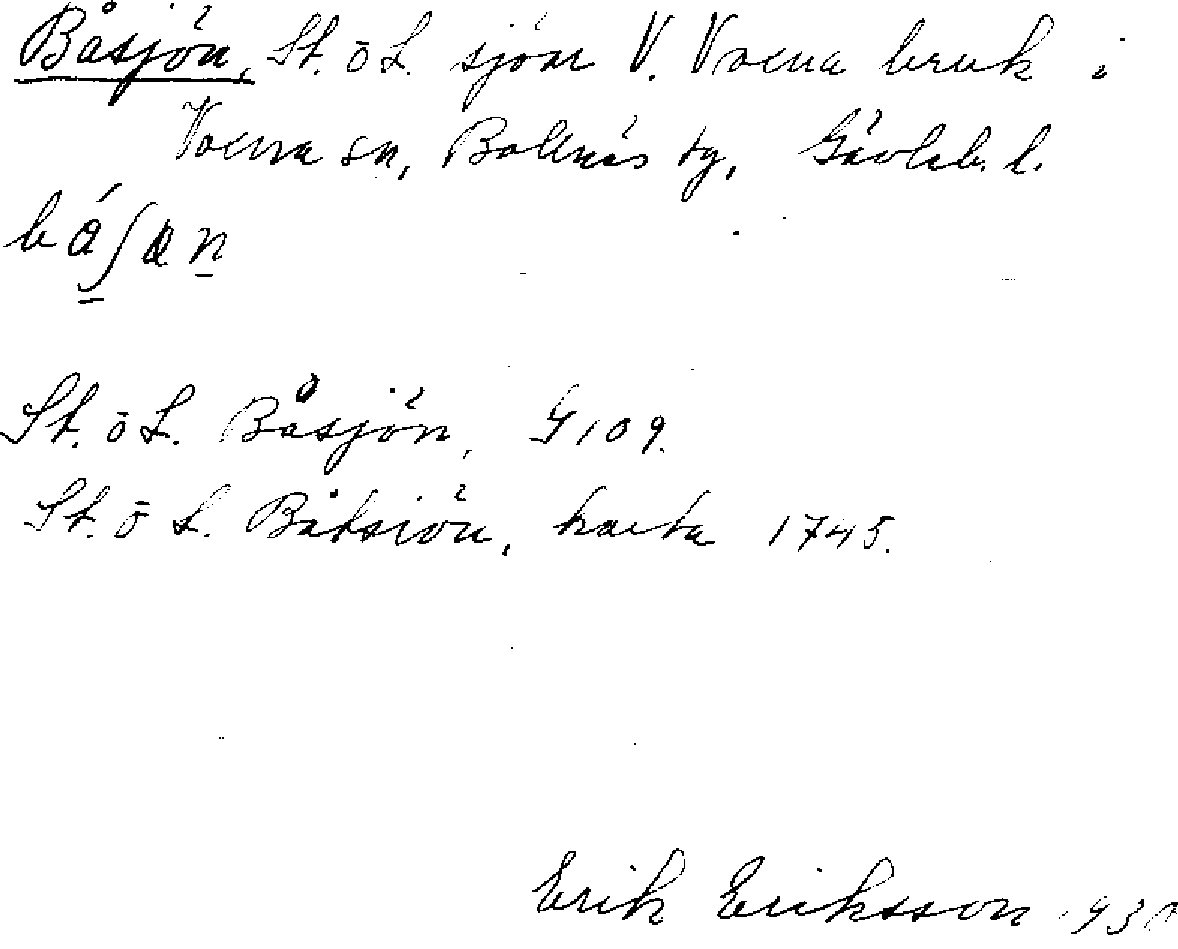 Båsjön, St. ö L. sjöar V. Voxna bruk i
Voxna sn, Bollnäs tg, Gävleb. l.
St. ö L. Båsjön, G 109.
St. ö L. Båtsiön, karta 1745.
Erik Eriksson 1930